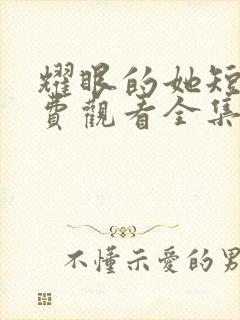 耀眼的她短
費觀看全集
不懂示愛的男